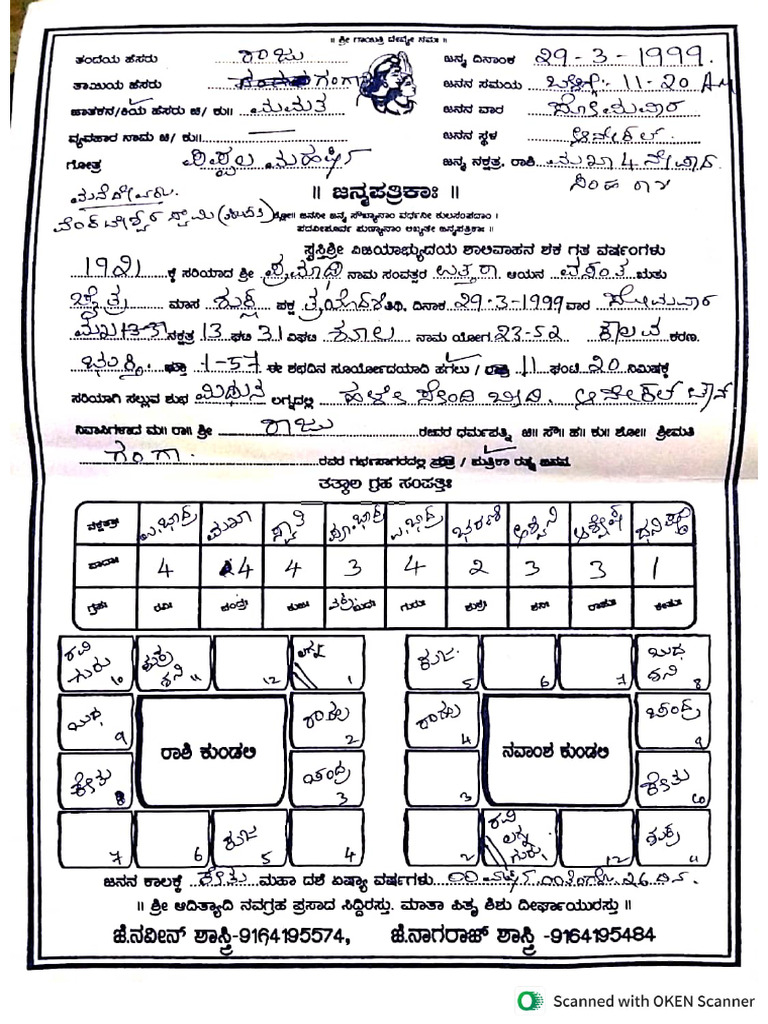 || ಶ್ರೀ ಗಾಯಿತ್ರಿ ದೇವ್ಯೇ ನಮಃ ||
ತಂದೆಯ ಹೆಸರು ರಾಜು
ಜನ್ಮ ದಿನಾಂಕ 29-3-1999.
ತಾಯಿಯ ಹೆಸರು ಗಂಗಾ
ಜನನ ಸಮಯ ಬೆಳಿಗ್ಗೆ. 11-20 AM
ಜಾತಕನ/ಕಿಯ ಹೆಸರು ಚಿ/ ಕು॥ ಮಮತ
ಜನನ ವಾರ ಸೋಮವಾರ
ವ್ಯವಹಾರ ನಾಮ ಚಿ/ ಕು॥
ಜನನ ಸ್ಥಳ ಆನೇಕಲ್.
ಗೋತ್ರ ಮಹರ್ಷಿ
ಜನ್ಮ ನಕ್ಷತ್ರ, ರಾಶಿ ಮಖಾ 4 ನೇ ಪಾದ
ಸಿಂಹ ರಾಶಿ
ಮನೆದೇವರು.
|| ಜನ್ಮಪತ್ರಿಕಾಃ ||
ವೆಂಕಟೇಶ್ವರ ಸ್ವಾಮಿ
ಶ್ಲೋ॥ ಜನನೀ ಜನ್ಮ ಸೌಖ್ಯಾನಾಂ ವರ್ಧನೀ ಕುಲಸಂಪದಾಂ |
ಪದವೀಪೂರ್ವ ಪುಣ್ಯಾನಾಂ ಲಿಖ್ಯತೇ ಜನ್ಮಪತ್ರಿಕಾಃ ||
ಸ್ವಸ್ತಿಶ್ರೀ ವಿಜಯಾಭ್ಯುದಯ ಶಾಲಿವಾಹನ ಶಕ ಗತ ವರ್ಷಂಗಳು
1921 ಕ್ಕೆ ಸರಿಯಾದ ಶ್ರೀ ಪ್ರಮಾಧಿ ನಾಮ ಸಂವತ್ಸರ ಉತ್ತರಾ ಆಯನ ವಸಂತ ಋತು
ಚೈತ್ರ ಮಾಸ ಶುಕ್ಲ ಪಕ್ಷ ತ್ರಯೋದಶಿ ತಿಥಿ, ದಿನಾಂಕ 29-3-1999 ವಾರ ಸೋಮವಾರ
ಮಖ 13-31 ನಕ್ಷತ್ರ 13 ಘಟಿ 31 ವಿಘಟಿ ಶೂಲ ನಾಮ ಯೋಗ 23-52 ಕೌಲವ ಕರಣ
ಭುಕ್ತಿ 1-57 ಈ ಶುಭದಿನ ಸೂರ್ಯೋದಯಾದಿ ಹಗಲು / ರಾತ್ರಿ 11 ಘಂಟೆ 20 ನಿಮಿಷಕ್ಕೆ
ಸರಿಯಾಗಿ ಸಲ್ಲುವ ಶುಭ ಮಿಥುನ ಲಗ್ನದಲ್ಲಿ ಹಳೇ ಬೀದಿ. ಆನೇಕಲ್ ಟೌನ್
ನಿವಾಸಿಗಳಾದ ಮ॥ ರಾ॥ ಶ್ರೀ ರಾಜು ರವರ ಧರ್ಮಪತ್ನಿ ಚಿ॥ ಸೌ॥ ಹ॥ ಕು॥ ಶೋ॥ ಶ್ರೀಮತಿ
ಗಂಗಾ. ರವರ ಗರ್ಭಸಾಗರದಲ್ಲಿ ಪುತ್ರ / ಪುತ್ರಿಕಾ ರತ್ನ ಜನನ
ತತ್ಕಾಲ ಗ್ರಹ ಸಂಪತ್ತಿಃ
ನಕ್ಷತ್ರಃ ಉ.ಭಾದ್ರ ಮಖಾ ಸ್ವಾತಿ ಪೂ.ಭಾದ್ರ ಉ.ಭಾದ್ರ ಭರಣಿ ಅಶ್ವಿನಿ ಆಶ್ಲೇಷ ಧನಿಷ್ಠ
ಪಾದಾಃ 4 4 4 3 4 2 3 3 1
ಗ್ರಹಾಃ ರವಿಃ ಚಂದ್ರಃ ಕುಜಃ ಬುಧಃ ಗುರುಃ ಶುಕ್ರಃ ಶನಿಃ ರಾಹುಃ ಕೇತುಃ
ರವಿ ಗುರು 10 ಶುಕ್ರ ಶನಿ 11 12 ಲಗ್ನ 1
ಕುಜ. 5 6 7 ಬುಧ ಶನಿ 8
ಬುಧ 9 ರಾಹು 2
ರಾಹು 4 ಚಂದ್ರ 9
ರಾಶಿ ಕುಂಡಲಿ
ನವಾಂಶ ಕುಂಡಲಿ
ಕೇತು 8 ಚಂದ್ರ 3
3 ಕೇತು 10
7 6 ಕುಜ 5 4
2 ರವಿ ಲಗ್ನ ಗುರು 12 ಶುಕ್ರ 11
ಜನನ ಕಾಲಕ್ಕೆ ಕೇತು ಮಹಾ ದಶೆ ಏಷ್ಯಾ ವರ್ಷಗಳು 00 ವರ್ಷ 00 ತಿಂಗಳು 26 ದಿನ.
|| ಶ್ರೀ ಆದಿತ್ಯಾದಿ ನವಗ್ರಹ ಪ್ರಸಾದ ಸಿದ್ಧಿರಸ್ತು. ಮಾತಾ ಪಿತೃ ಶಿಶು ದೀರ್ಘಾಯುರಸ್ತು ||
ಜೆ.ನವೀನ್ ಶಾಸ್ತ್ರಿ-9164195574, ಜೆ.ನಾಗರಾಜ್ ಶಾಸ್ತ್ರಿ -9164195484
Scanned with OKEN Scanner